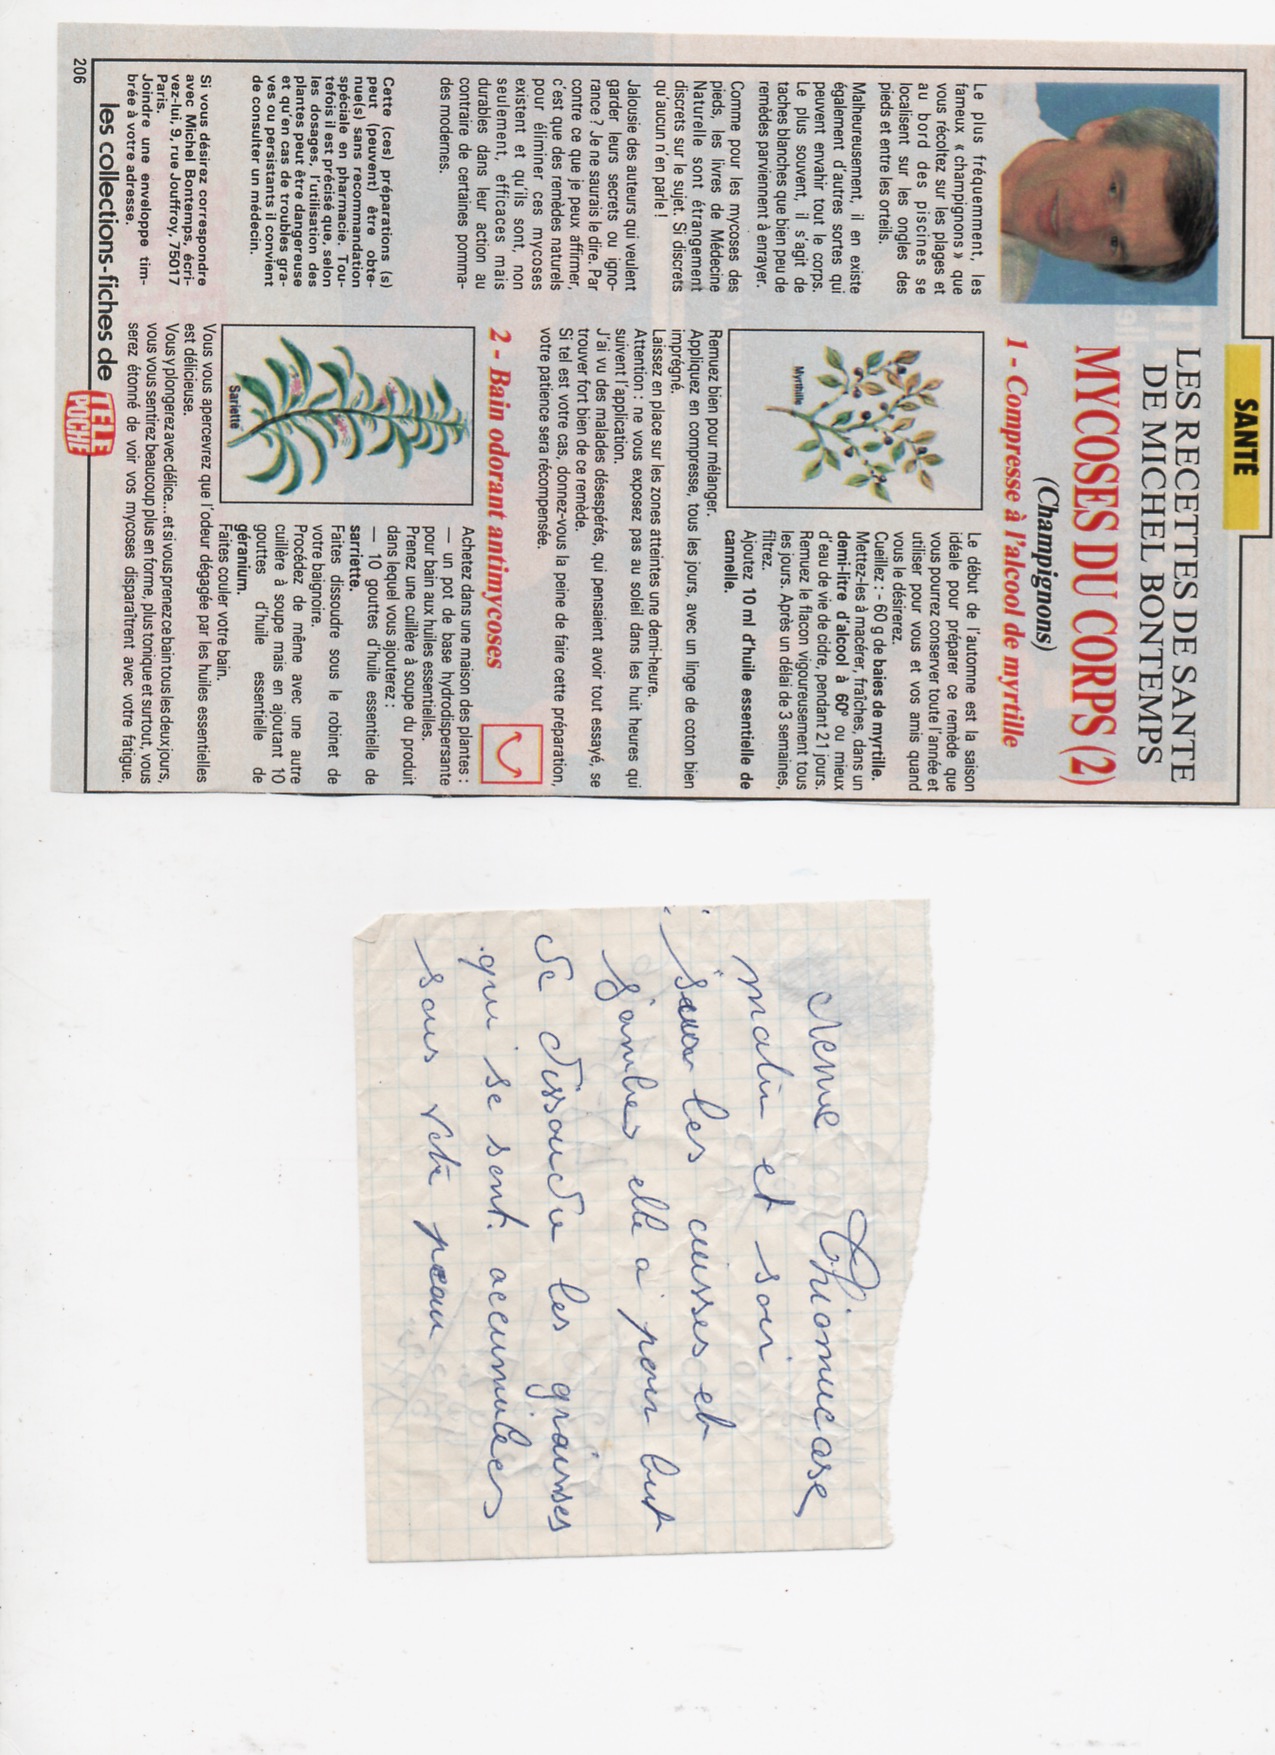 SANTÉ
LES RECETTES DE SANTE
DE MICHEL BONTEMPS
MYCOSES DU CORPS (2)
(Champignons)
1 - Compresse à l'alcool de myrtille
Le plus fréquemment, les
fameux « champignons » que
vous récoltez sur les plages et
au bord des piscines se
localisent sur les ongles des
pieds et entre les orteils.
Malheureusement, il en existe
également d'autres sortes qui
peuvent envahir tout le corps.
Le plus souvent, il s'agit de
taches blanches que bien peu de
remèdes parviennent à enrayer.
Comme pour les mycoses des
pieds, les livres de Médecine
Naturelle sont étrangement
discrets sur le sujet. Si discrets
qu'aucun n'en parle !
Jalousie des auteurs qui veulent
garder leurs secrets ou igno-
rance ? Je ne saurais le dire. Par
contre ce que je peux affirmer,
c'est que des remèdes naturels
pour éliminer ces mycoses
existent et qu'ils sont, non
seulement, efficaces mais
durables dans leur action au
contraire de certaines pomma-
des modernes.
Cette (ces) préparations (s)
peut (peuvent) être obte-
nue(s) sans recommandation
spéciale en pharmacie. Tou-
tefois il est précisé que, selon
les dosages, l'utilisation des
plantes peut être dangereuse
et qu'en cas de troubles gra-
ves ou persistants il convient
de consulter un médecin.
Si vous désirez correspondre
avec Michel Bontemps, écri-
vez-lui, 9, rue Jouffroy, 75017
Paris.
Joindre une envelopppe tim-
brée à votre adresse.
Myrthille
Le début de l'automne est la saison
idéale pour préparer ce remède que
vous pourrez conserver toute l'année et
utiliser pour vous et vos amis quand
vous le désirerez.
Cueillez : - 60 g de baies de myrtille.
Mettez-les à macérer, fraîches, dans un
demi-litre d'alcool à 60° ou mieux
d'eau de vie de cidre, pendant 21 jours.
Remuez le flacon vigoureusement tous
les jours. Après un délai de 3 semaines,
filtrez.
Ajoutez 10 ml d'huile essentielle de
cannelle.
Remuez bien pour mélanger.
Appliquez en compresse, tous les jours, avec un linge de coton bien
imprégné.
Laissez en place sur les zones atteintes une demi-heure.
Attention : ne vous exposez pas au soleil dans les huit heures qui
suivent l'application.
J'ai vu des malades désespérés, qui pensaient avoir tout essayé, se
trouver fort bien de ce remède.
Si tel est votre cas, donnez-vous la peine de faire cette préparation,
votre patience sera récompensée.
2 - Bain odorant antimycoses
Sariette
Achetez dans une maison des plantes :
— un pot de base hydrodispersante
pour bain aux huiles essentielles.
Prenez une cuillère à soupe du produit
dans lequel vous ajouterez :
— 10 gouttes d'huile essentielle de
sarriette.
Faites dissoudre sous le robinet de
votre baignoire.
Procédez de même avec une autre
cuillère à soupe mais en ajoutant 10
gouttes d'huile essentielle de
géranium.
Faites couler votre bain.
Vous vous apercevrez que l'odeur dégagée par les huiles essentielles
est délicieuse.
Vous y plongerez avec délice... et si vous prenez ce bain tous les deux jours,
vous vous sentirez beaucoup plus en forme, plus tonique et surtout, vous
serez étonné de voir vos mycoses disparaîtrent avec votre fatigue.
206
les collections-fiches de TELE POCHE
creme Thiomucase,
matin et soir
sur les cuisses et
jambes elle a pour but
de dissoudre les graisses
qui se sont accumulées
sous votre peau